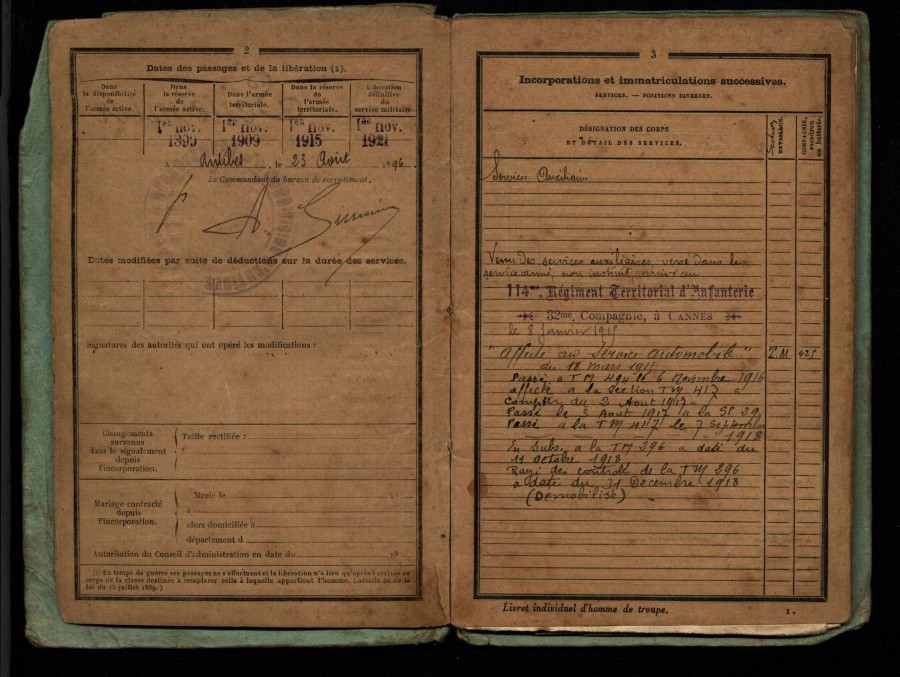 2
Dates des passages et de la libération (1).
Dans
la disponibilité
de
l'armée active.
Dans
la réserve
de
l'armée active.
Dans l'armée
territoriale.
Dans la réserve
de
l'armée
territoriale.
Libération
définitive
du
service militaire.
1er nov.
1899
1er nov.
1909
1er nov.
1915
1er nov.
1921
A Antibes, le 23 Avril 1896.
Le Commandant du bureau de recrutement,
Dates modifiées par suite de déductions sur la durée des services.
Signatures des autorités qui ont opéré les modifications :
Changements
survenus
dans le signalement
depuis
l'incorporation.
Taille rectifiée :
Mariage contracté
depuis
l'incorporation.
Marié le
à
alors domiciliée à
département d
Autorisation du Conseil d'administration en date du 18
(1) En temps de guerre ces passages ne s'effectuent et la libération n'a lieu qu'après l'arrivée au
corps de la classe destinée à remplacer celle à laquelle appartient l'homme. (Article 40 de la
loi du 15 juillet 1889.)
3
Incorporations et immatriculations successives.
SERVICES. — POSITIONS DIVERSES.
DÉSIGNATION DES CORPS
ET DÉTAIL DES SERVICES.
Section
COMPAGNIE,
escadron
ou batterie.
Services Auxiliaires
Venu des services auxiliaires, versé dans le
service armé, non instruit, arrivé au
114me. Régiment Territorial d'Infanterie
32me Compagnie, à CANNES
le 8 Janvier 1915
"Affecté au Service Automobile" T.M 425
du 18 mars 1915
Passé a TM 494 le 6 Novembre 1916
affecté a la Section TM 417 à
Compter du 2 Aout 1917
Passé le 3 Aout 1917 a la SP 29
Passé a la TM 417 le 7 Septembre
1918
En Subs. a la TM 396 a daté du
11 Octobre 1918
Rayé des controle de la TM 396
a daté du 31 Decembre 1918
(Demobilisé)
Livret individuel d'homme de troupe.
1.